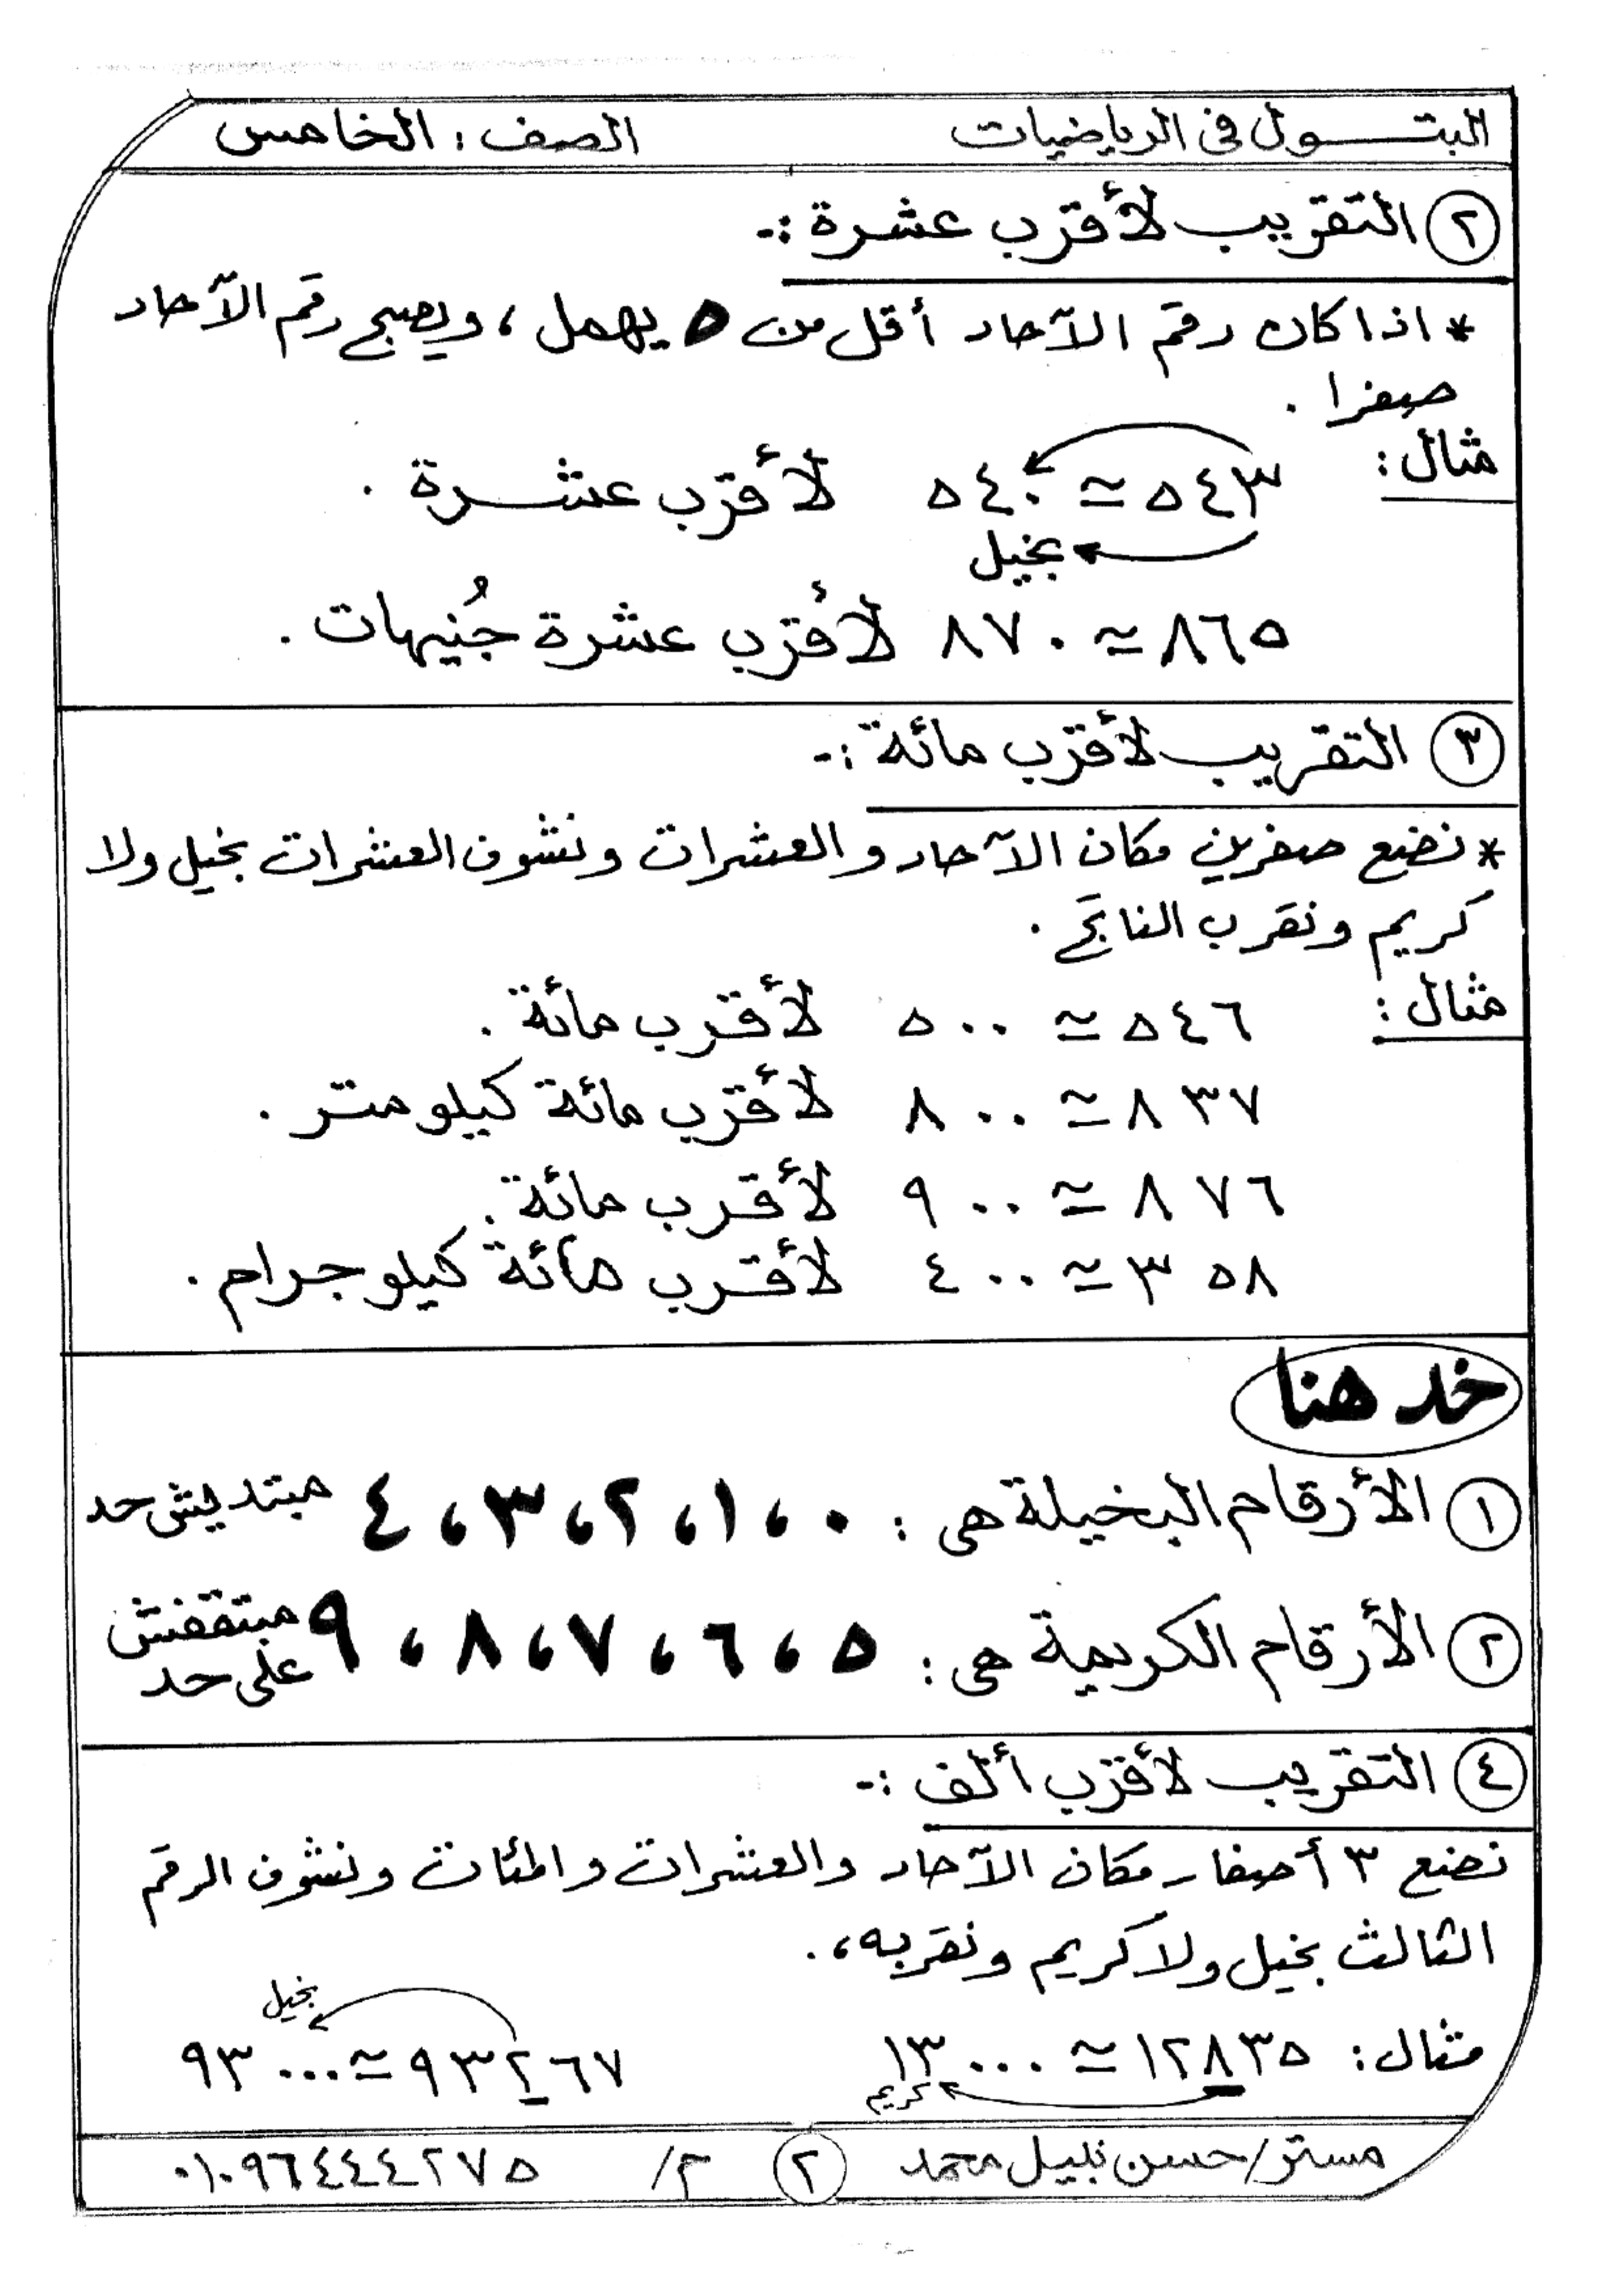 البتول فى الرياضيات الصف : الخامس
٢ التقريب لأقرب عشرة :-
* اذا كان رقم الآحاد أقل من ٥ يهمل ، ويصبح رقم الآحاد
صفرا .
مثال : ٥٤٣ ≃ ٥٤٠ لأقرب عشرة .
بخيل
٨٦٥ ≃ ٨٧٠ لأقرب عشرة جُنيهات .
٣ التقريب لأقرب مائة :-
* نضع صفرين مكان الآحاد والعشرات ونشوف العشرات بخيل ولا
كريم ونقرب الناتج .
مثال : ٥٤٦ ≃ ٥٠٠ لأقرب مائة .
٨٣٧ ≃ ٨٠٠ لأقرب مائة كيلو متر .
٨٧٦ ≃ ٩٠٠ لأقرب مائة .
٣٥٨ ≃ ٤٠٠ لأقرب مائة كيلو جرام .
خد هنا
١ الأرقام البخيلة هى : ٠ ، ١ ، ٢ ، ٣ ، ٤ مبتديش حد
٢ الأرقام الكريمة هى : ٥ ، ٦ ، ٧ ، ٨ ، ٩ مبتقفش
على حد
٤ التقريب لأقرب ألف :-
نضع ٣ أصفار مكان الآحاد والعشرات والمئات ونشوف الرقم
الثالث بخيل ولا كريم ونقربه ، .
بخيل
مثال : ١٢٨٣٥ ≃ ١٣٠٠٠ ٩٣٢٦٧ ≃ ٩٣٠٠٠
كريم
مستر / حسن نبيل محمد ٢ م / ٠١٠٩٦٤٤٤٢٧٥